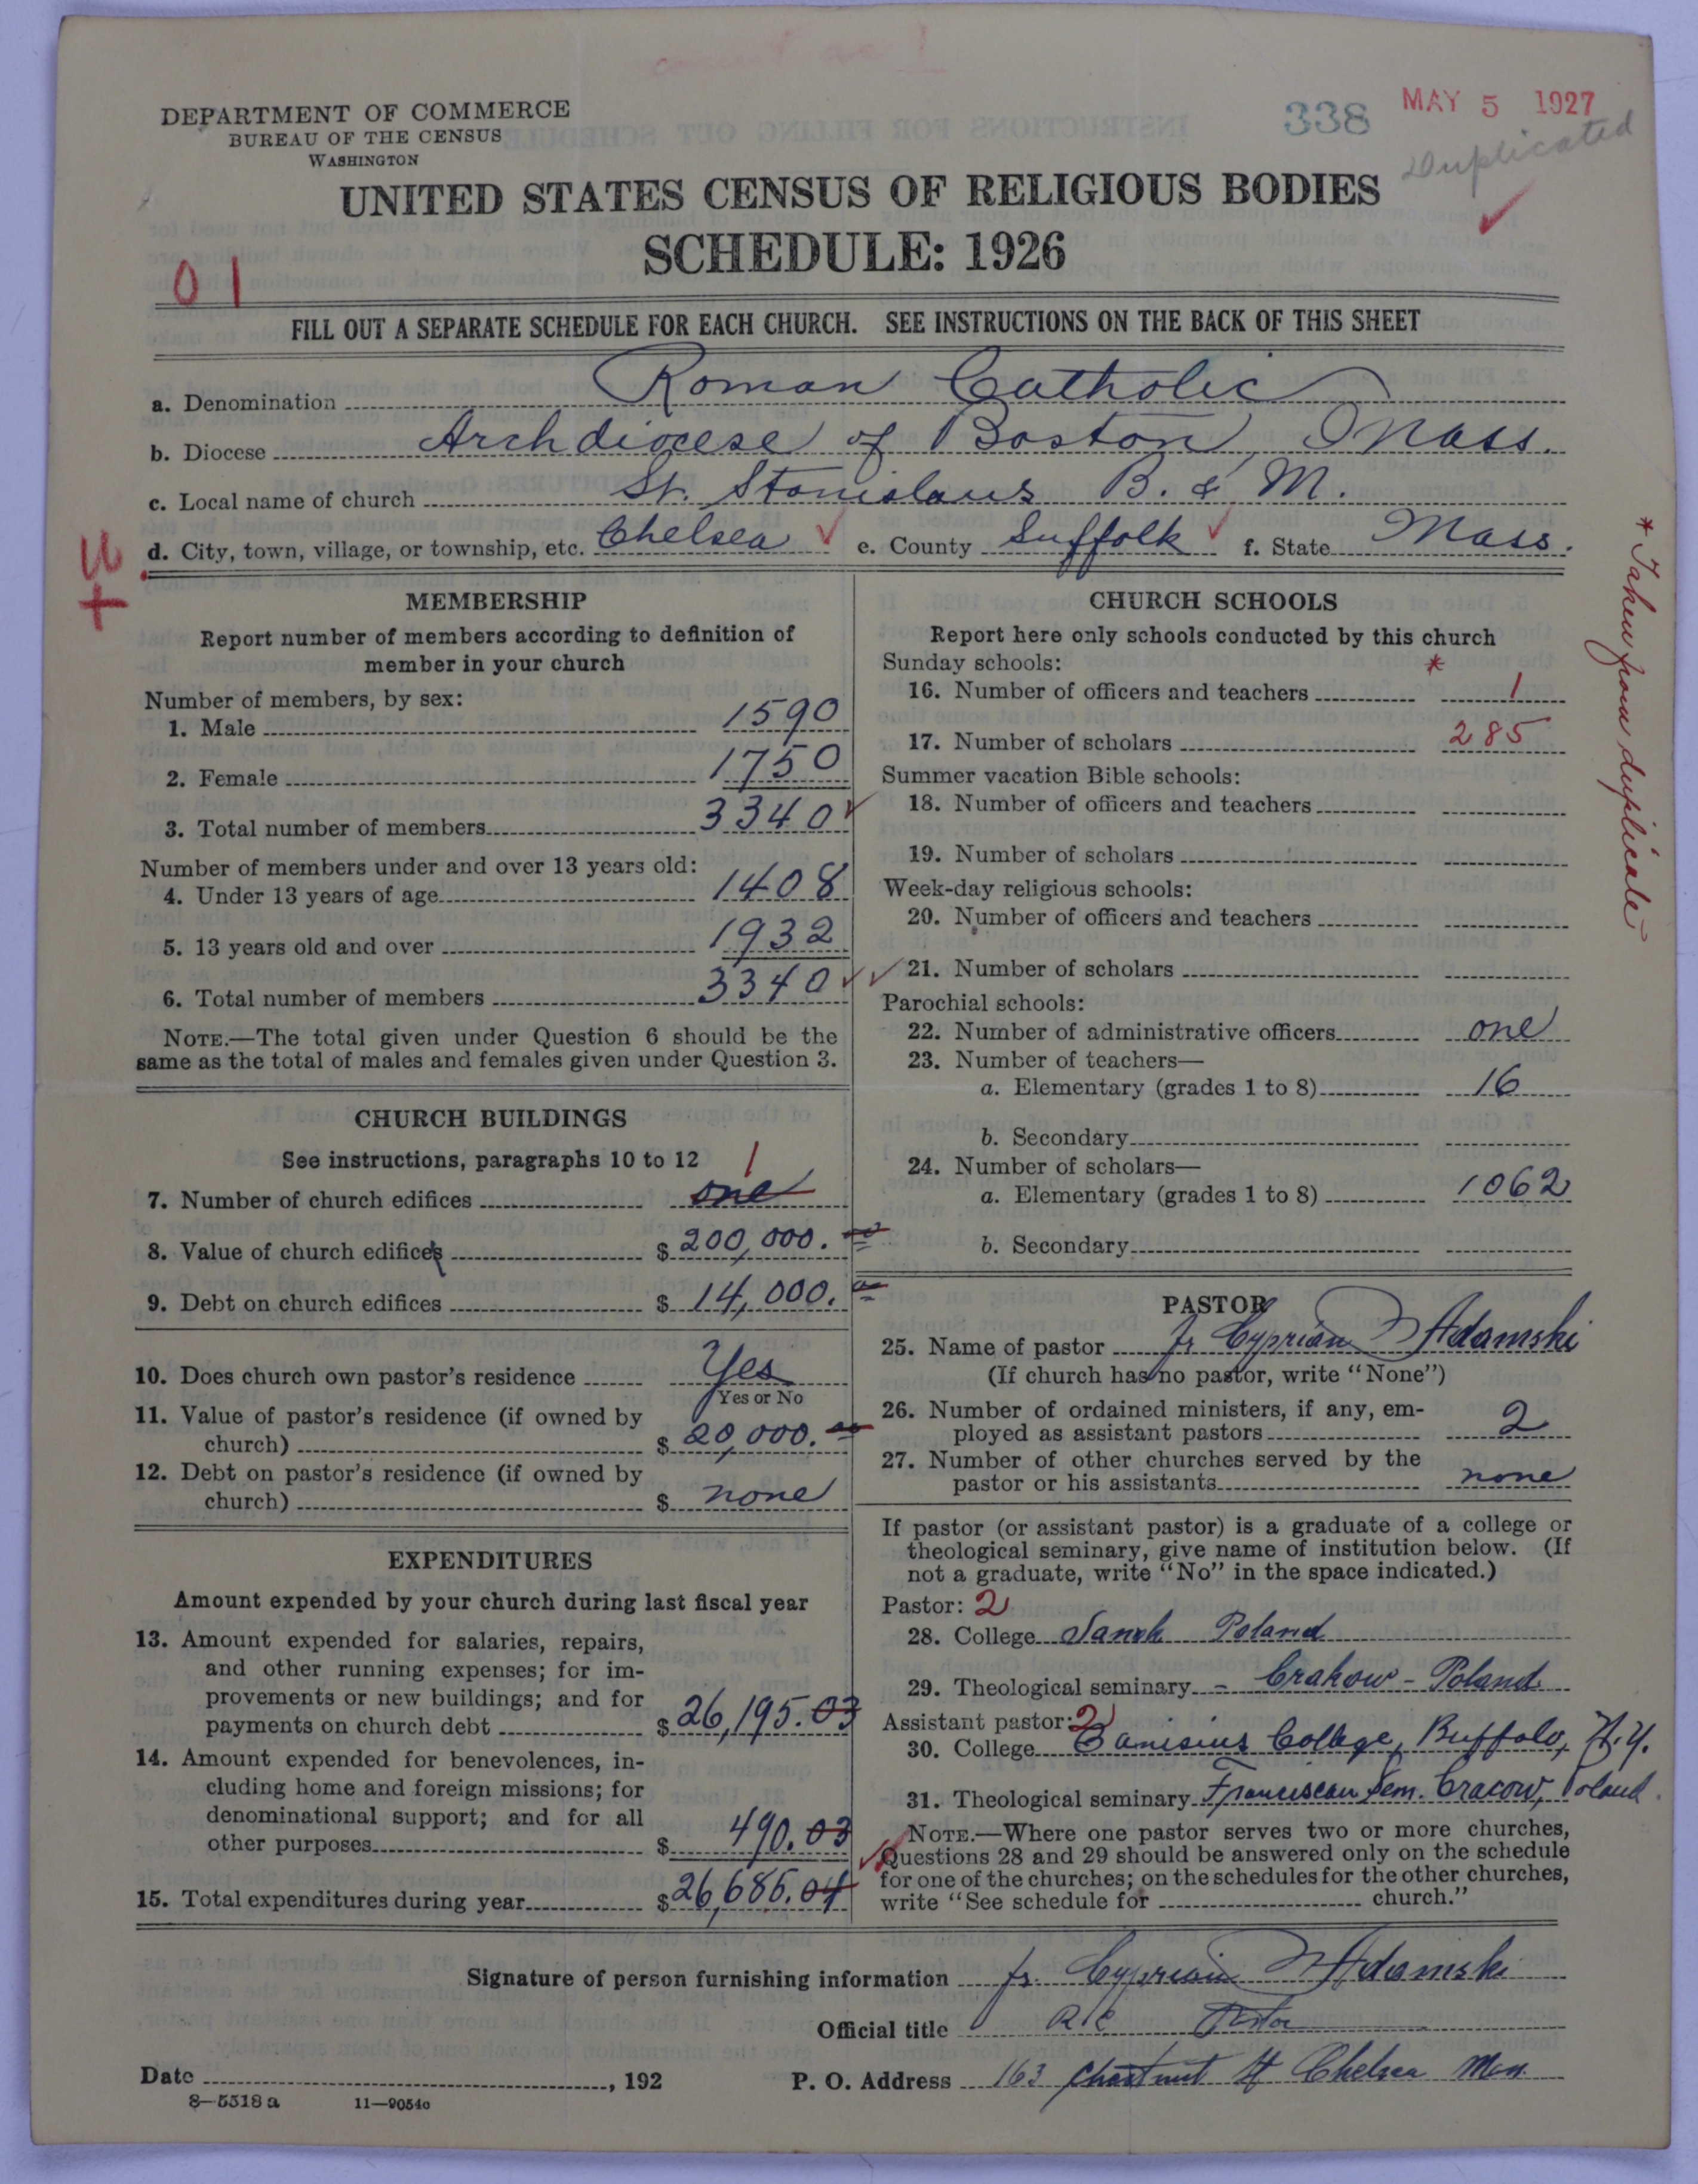 338 MAY 5 1927
Duplicated
DEPARTMENT OF COMMERCE
BUREAU OF THE CENSUS
WASHINGTON
UNITED STATES CENSUS OF RELIGIOUS BODIES
SCHEDULE: 1926
01
FILL OUT A SEPARATE SCHEDULE FOR EACH CHURCH. SEE INSTRUCTIONS ON THE BACK OF THIS SHEET
a. Denomination Roman Catholic
b. Diocese Archdiocese of Boston, Mass.
c. Local name of church St. Stanislaus B. & M.
d. City, town, village, or township, etc. Chelsea ✓ e. County Suffolk ✓ f. State Mass.
* Taken from duplicate
MEMBERSHIP
Report number of members according to definition of
member in your church
Number of members, by sex:
1. Male 1590
2. Female 1750
3. Total number of members 3340 ✓
Number of members under and over 13 years old:
4. Under 13 years of age 1408
5. 13 years old and over 1932
6. Total number of members 3340 ✓ ✓
NOTE.—The total given under Question 6 should be the
same as the total of males and females given under Question 3.
CHURCH BUILDINGS
See instructions, paragraphs 10 to 12
7. Number of church edifices one 1
8. Value of church edifices $ 200,000.
9. Debt on church edifices $ 14,000.
10. Does church own pastor's residence Yes
Yes or No
11. Value of pastor's residence (if owned by
church) $ 20,000.
12. Debt on pastor's residence (if owned by
church) $ none
EXPENDITURES
Amount expended by your church during last fiscal year
13. Amount expended for salaries, repairs,
and other running expenses; for im-
provements or new buildings; and for
payments on church debt $ 26,195.03
14. Amount expended for benevolences, in-
cluding home and foreign missions; for
denominational support; and for all
other purposes $ 490.03
15. Total expenditures during year $ 26,685.04
CHURCH SCHOOLS
Report here only schools conducted by this church
Sunday schools: *
16. Number of officers and teachers 1
17. Number of scholars 285
Summer vacation Bible schools:
18. Number of officers and teachers
19. Number of scholars
Week-day religious schools:
20. Number of officers and teachers
21. Number of scholars
Parochial schools:
22. Number of administrative officers one
23. Number of teachers—
a. Elementary (grades 1 to 8) 16
b. Secondary
24. Number of scholars—
a. Elementary (grades 1 to 8) 1062
b. Secondary
PASTOR
25. Name of pastor Fr Cyprian Adamski
(If church has no pastor, write "None")
26. Number of ordained ministers, if any, em-
ployed as assistant pastors 2
27. Number of other churches served by the
pastor or his assistants none
If pastor (or assistant pastor) is a graduate of a college or
theological seminary, give name of institution below. (If
not a graduate, write "No" in the space indicated.)
Pastor: 2
28. College Sanok Poland
29. Theological seminary - Crakow - Poland
Assistant pastor: 2
30. College Canisius College, Buffalo, N.Y.
31. Theological seminary Franciscan Sem. Cracow, Poland.
NOTE.—Where one pastor serves two or more churches,
Questions 28 and 29 should be answered only on the schedule
for one of the churches; on the schedules for the other churches,
write "See schedule for church."
Signature of person furnishing information Fr. Cyprian Adamski
Official title R.C. Pastor
Date , 192 P. O. Address 163 Chestnut St Chelsea Mass
8—5518 a 11—9054c